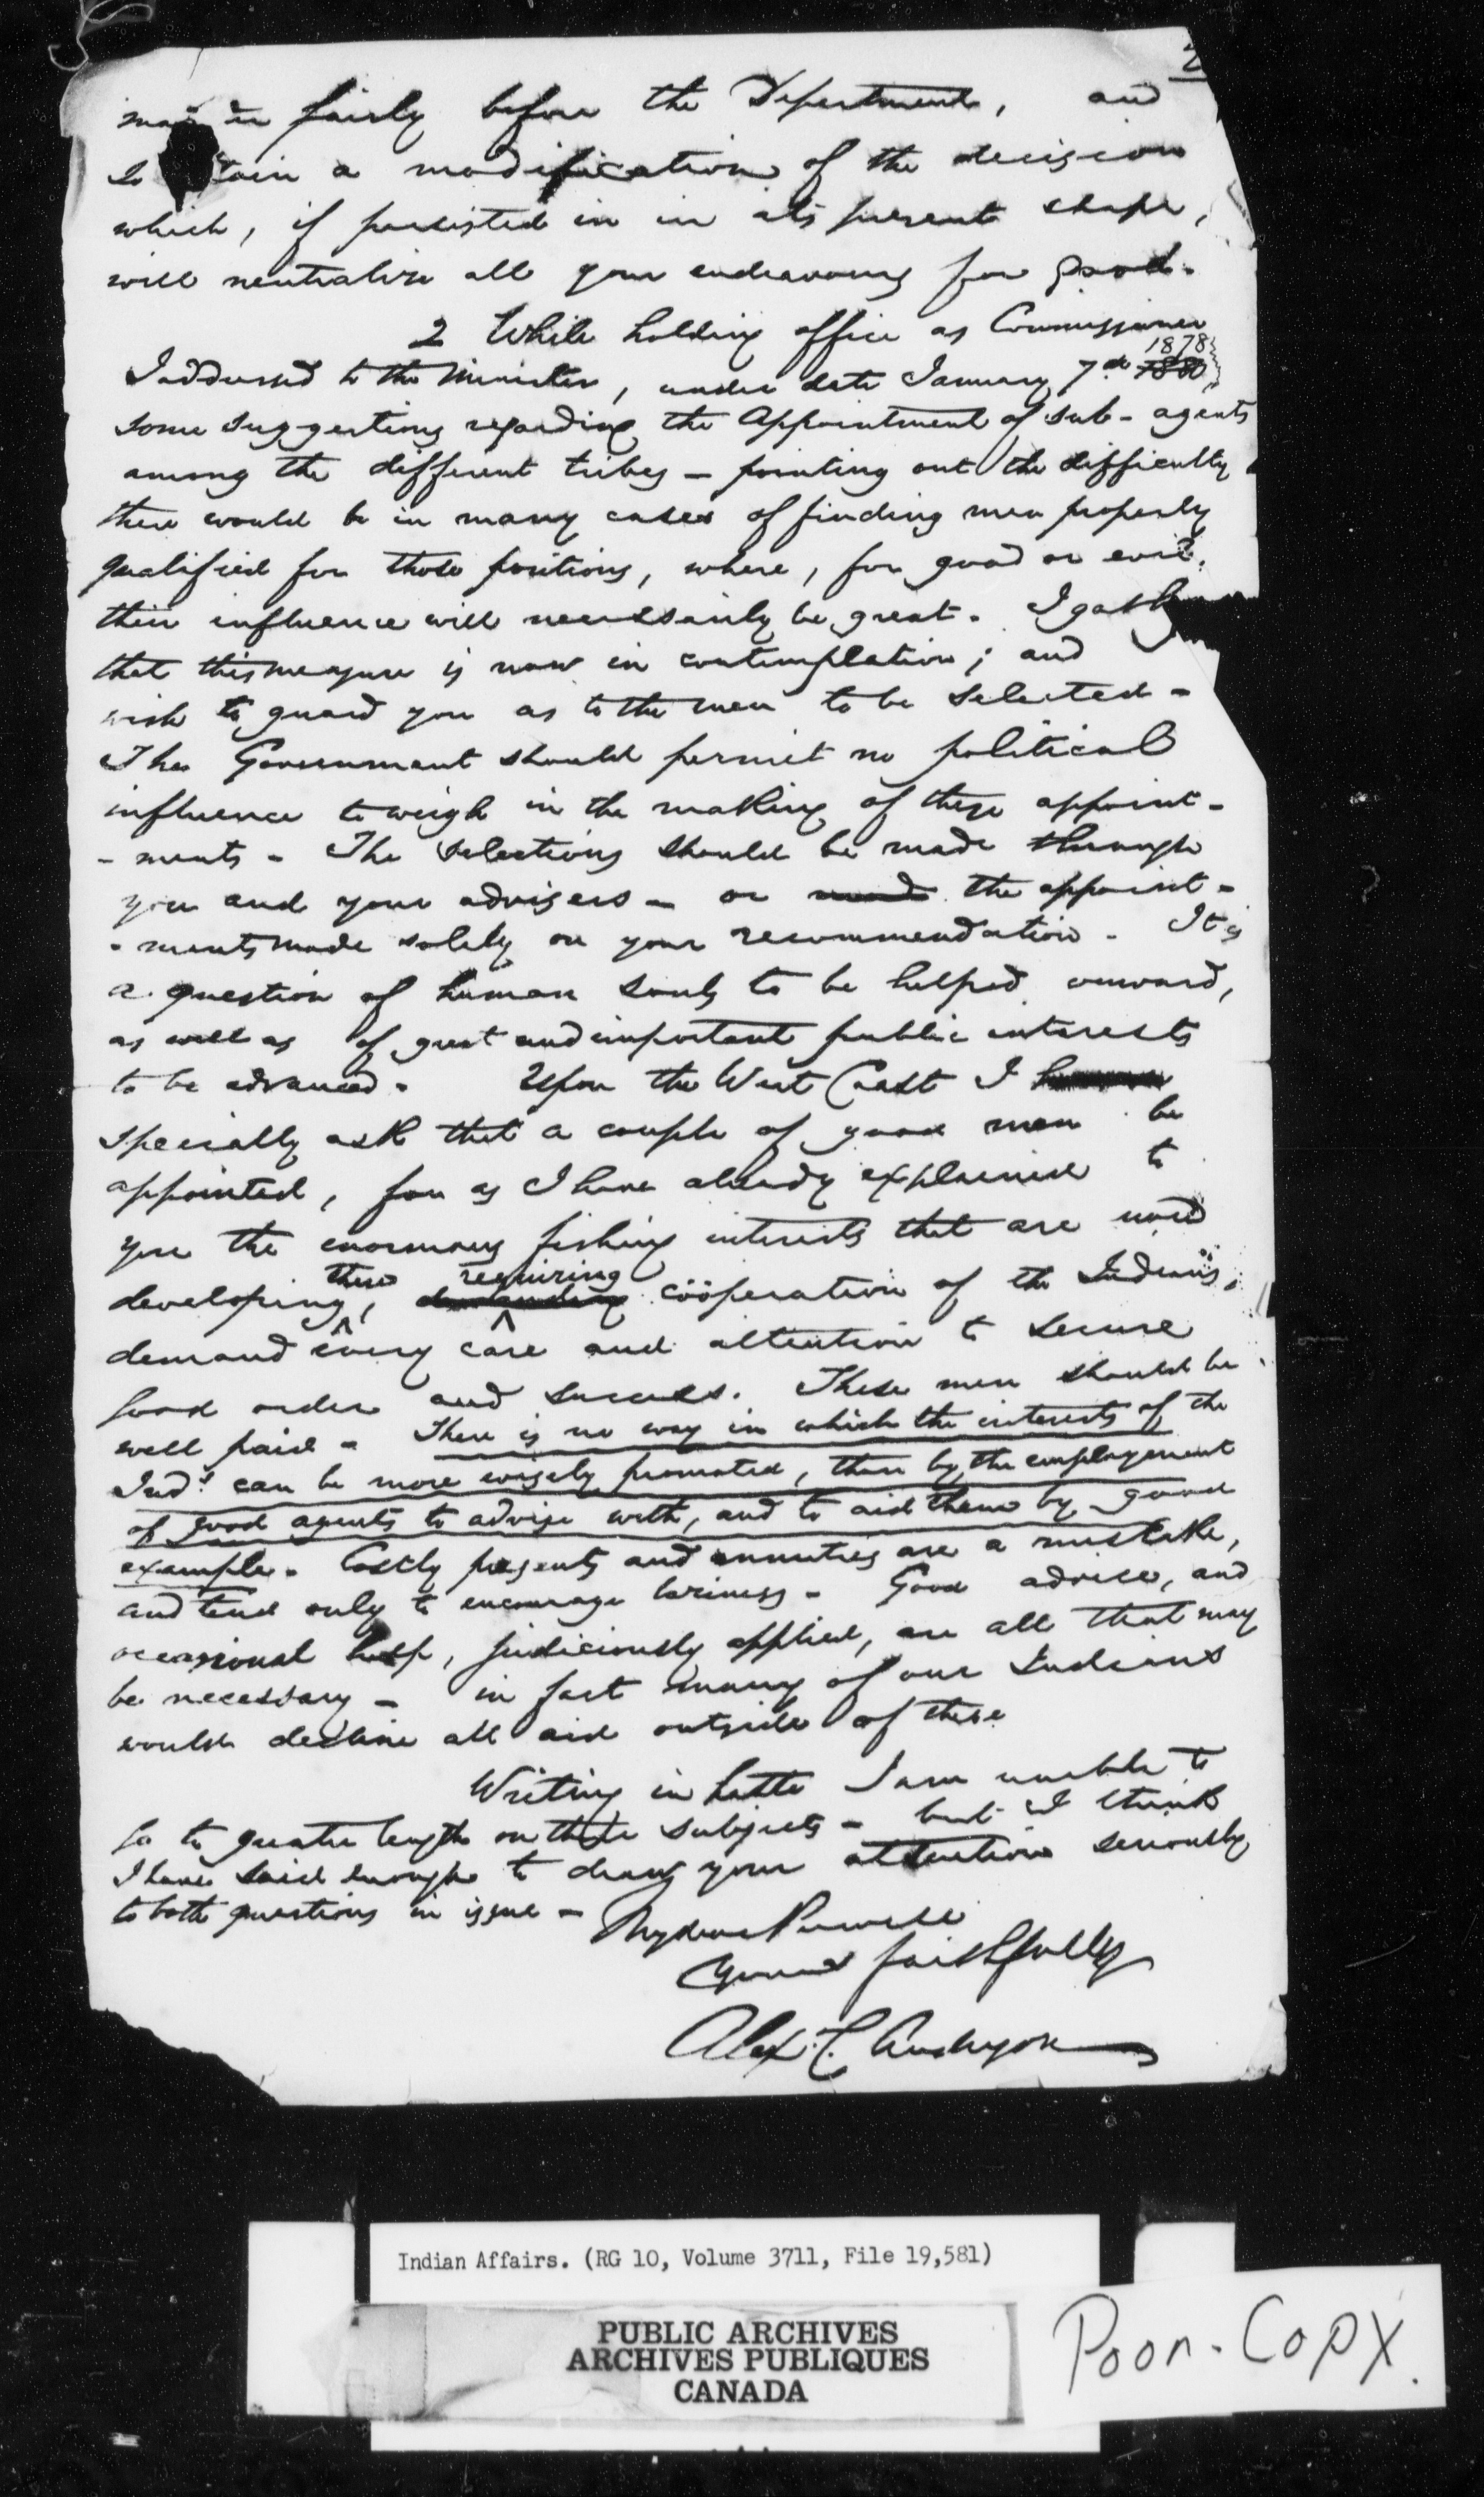 2
matter fairly before the Department, and
to obtain a modification of the decision
which, if persisted in in its present shape,
will neutralize all your endeavours for good.
2 While holding office as Commissioner
1878
I addressed to the Minister, under date January 7th 1880
some suggestions regarding the Appointment of sub-agents
among the different tribes - pointing out the difficulty
there would be in many cases of finding men properly
qualified for those positions, where, for good or evil,
their influence will necessarily be great. I gather
that this measure is now in contemplation; and
wish to guard you as to the men to be selected -
The Government should permit no political
influence to weigh in the making of these appoint-
-ments - The selections should be made through
you and your advisers - or made the appoint-
-ments made solely on your recommendation - It is
a question of human souls to be helped onward,
as well as of great and important public interests
to be advanced. Upon the West Coast I
specially ask that a couple of good men be
appointed, for as I have already explained to
you the enormous fishing interests that are now
there requiring
developing, demanding coöperation of the Indians,
demand every care and attention to secure
good order and success. These men should be
well paid - There is no way in which the interests of the
Inds. can be more wisely promoted, than by the employment
of good agents to advise with, and to aid them by good
example. Costly presents and annuities are a mistake,
and tend only to encourage laziness - Good advice, and
occasional help, judiciously applied, are all that may
be necessary - in fact many of our Indians
would decline all aid outside of these
Writing in haste I am unable to
go to greater length on these subjects - but I think
I have said enough to draw your attention seriously
to both questions in issue -
My dear Powell
Yours faithfully
Alex. C. Anderson
Indian Affairs. (RG 10, Volume 3711, File 19,581)
PUBLIC ARCHIVES
ARCHIVES PUBLIQUES
CANADA
Poor-Copy.